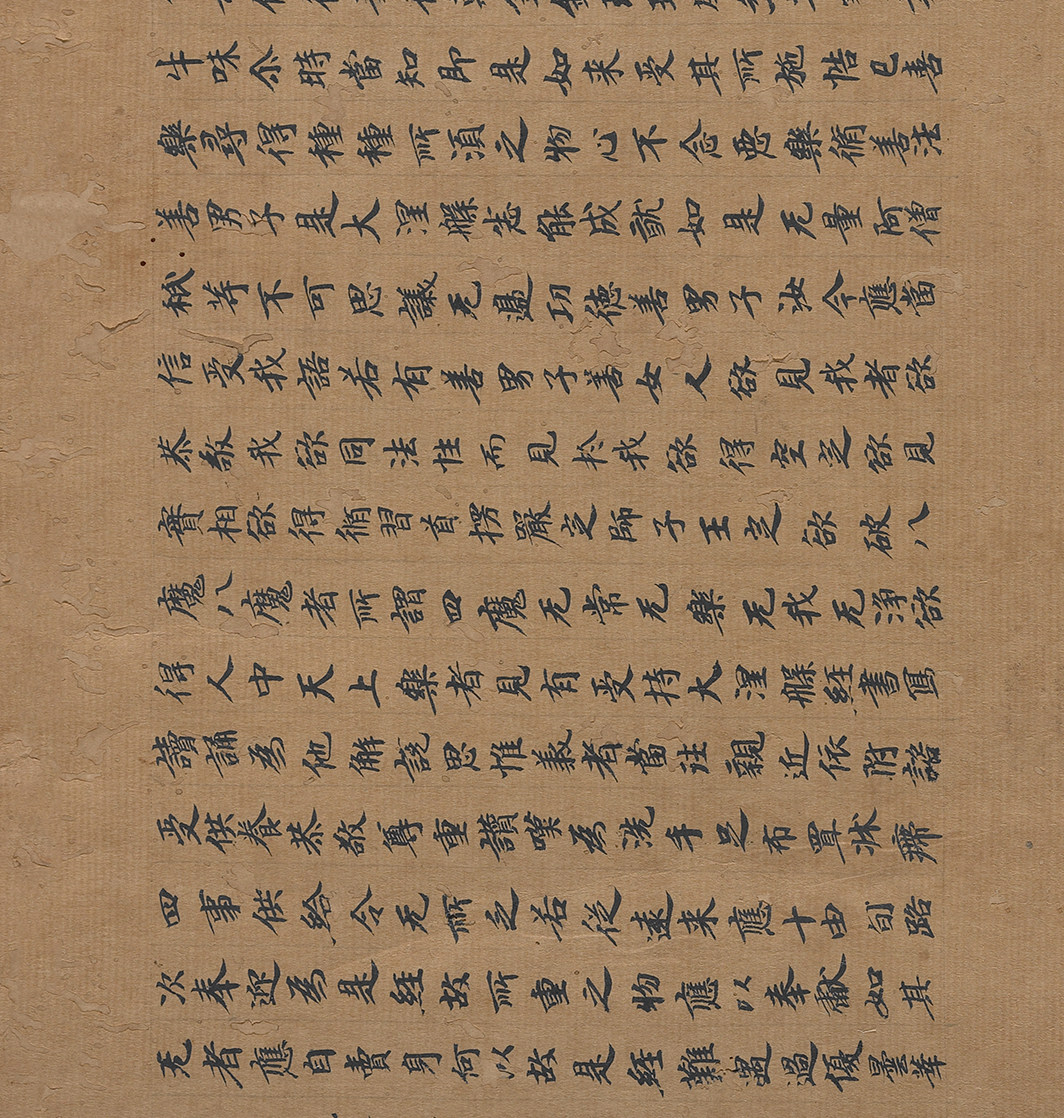 牛味尒時當知即是如来受其所施悟已善
樂尋得種種所須之物心不念惡樂脩善法
善男子是大涅槃悉能成就如是无量阿僧
祇等不可思議无邊功德善男子汝今應當
信受我語若有善男子善女人欲見我者欲
恭敬我欲同法性而見於我欲得空定欲見
實相欲得脩習首楞嚴定師子王定欲破八
魔八魔者所謂四魔无常无樂无我无淨欲
得人中天上樂者見有受持大涅槃經書寫
讀誦為他解說思惟義者當往親近依附諮
受供養恭敬尊重讚嘆為洗手足布置牀席
四事供給令无所乏若從遠来應十由旬路
次奉迎為是經故所重之物應以奉獻如其
无者應自賣身何以故是經難遇過優曇華